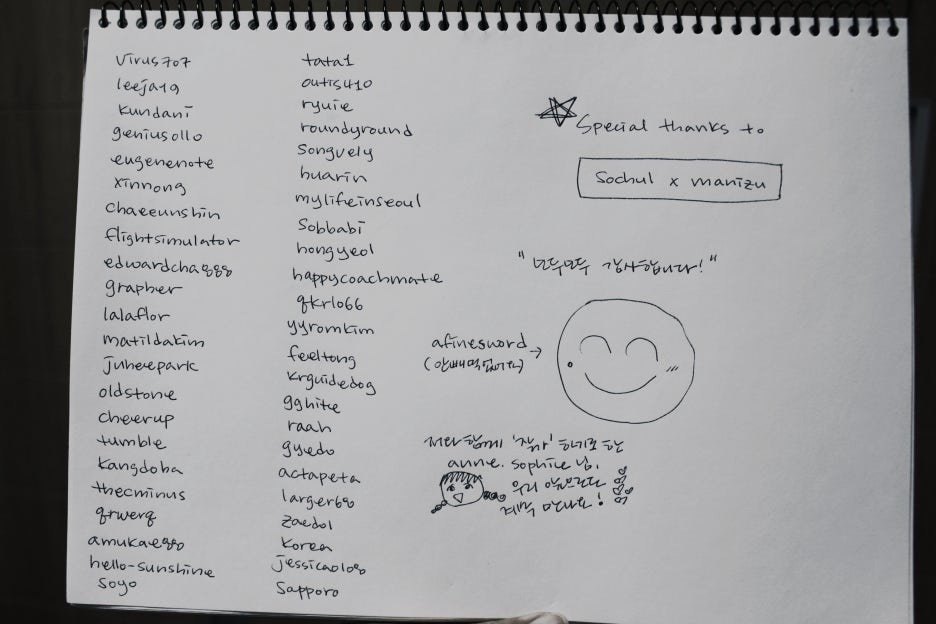 virus707
leeja19
kundani
geniusollo
eugenenote
xinnong
chaeeunshin
flightsimulator
edwardcha888
grapher
lalaflor
matildakim
juheepark
oldstone
cheerup
tumble
kangdoba
thecminus
qrwerq
amukae88o
hello-sunshine
soyo
tata1
outis410
ryuie
roundyround
songvely
huarin
mylifeinseoul
sobbabi
hongyeol
happycoachmate
qkrlo66
yyromkim
feeltong
krguidedog
gghite
raah
gyedo
actapeta
zaedol
korea
jessica0108
sapporo
Special thanks to
sochul x manizu
"모두모두 감사합니다!"
afinesword →
저와 함께 '작가' 하기로 한
anne. sophie 님.
우리
계속 만나요!